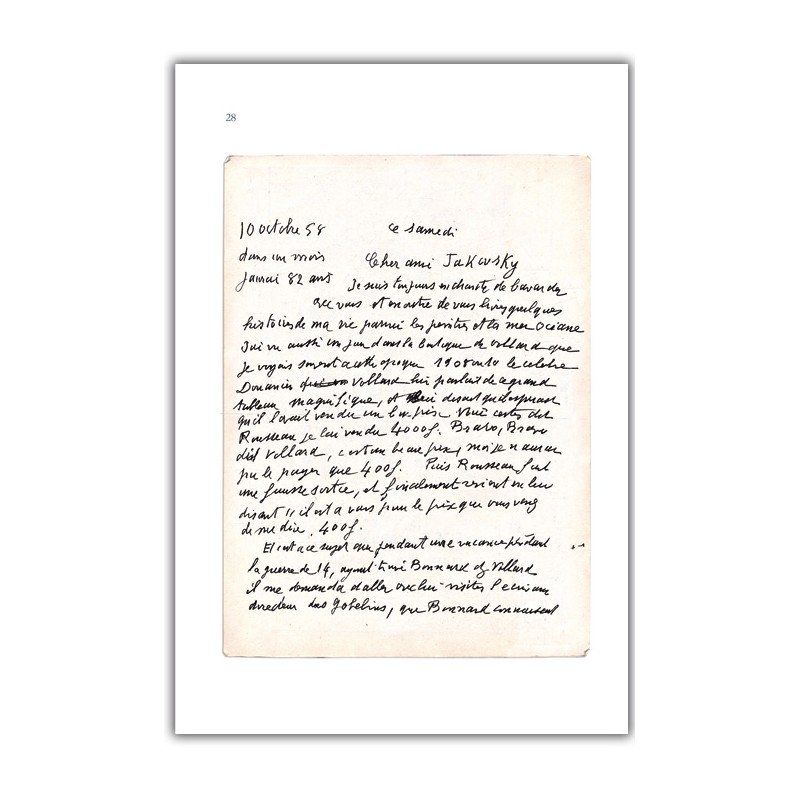 28
10 octobre 58 ce samedi
dans un mois Cher ami Jakovsky
j'aurai 82 ans Je suis toujours enchanté de bavarder
avec vous et de vous livrer quelques
histoires de ma vie parmi les peintres et la mer Océane
J'ai vu aussi un jour dans la boutique de Vollard que
je voyais souvent a cette epoque 1908 ou 10 le celebre
Douanier Vollard lui parlait de ce grand
tableau magnifique, et disait
qu'il l'avait vendu un bon prix. Oui certes dit
Rousseau je l'ai vendu 4000 f. Bravo, Bravo
dit Vollard, c'est un beau prix, moi je n'aurais
pu le payer que 400 f. Puis Rousseau fait
une fausse sortie, et finalement revient en lui
disant il est a vous pour le prix que vous venez
de me dire, 400 f.
Et c'est a ce sujet que pendant une vacance pendant
la guerre de 14, ayant trouvé Bonnard chez Vollard
il me demanda d'aller avec lui visiter l'ecrivain
directeur des Gobelins, que Bonnard connaissait